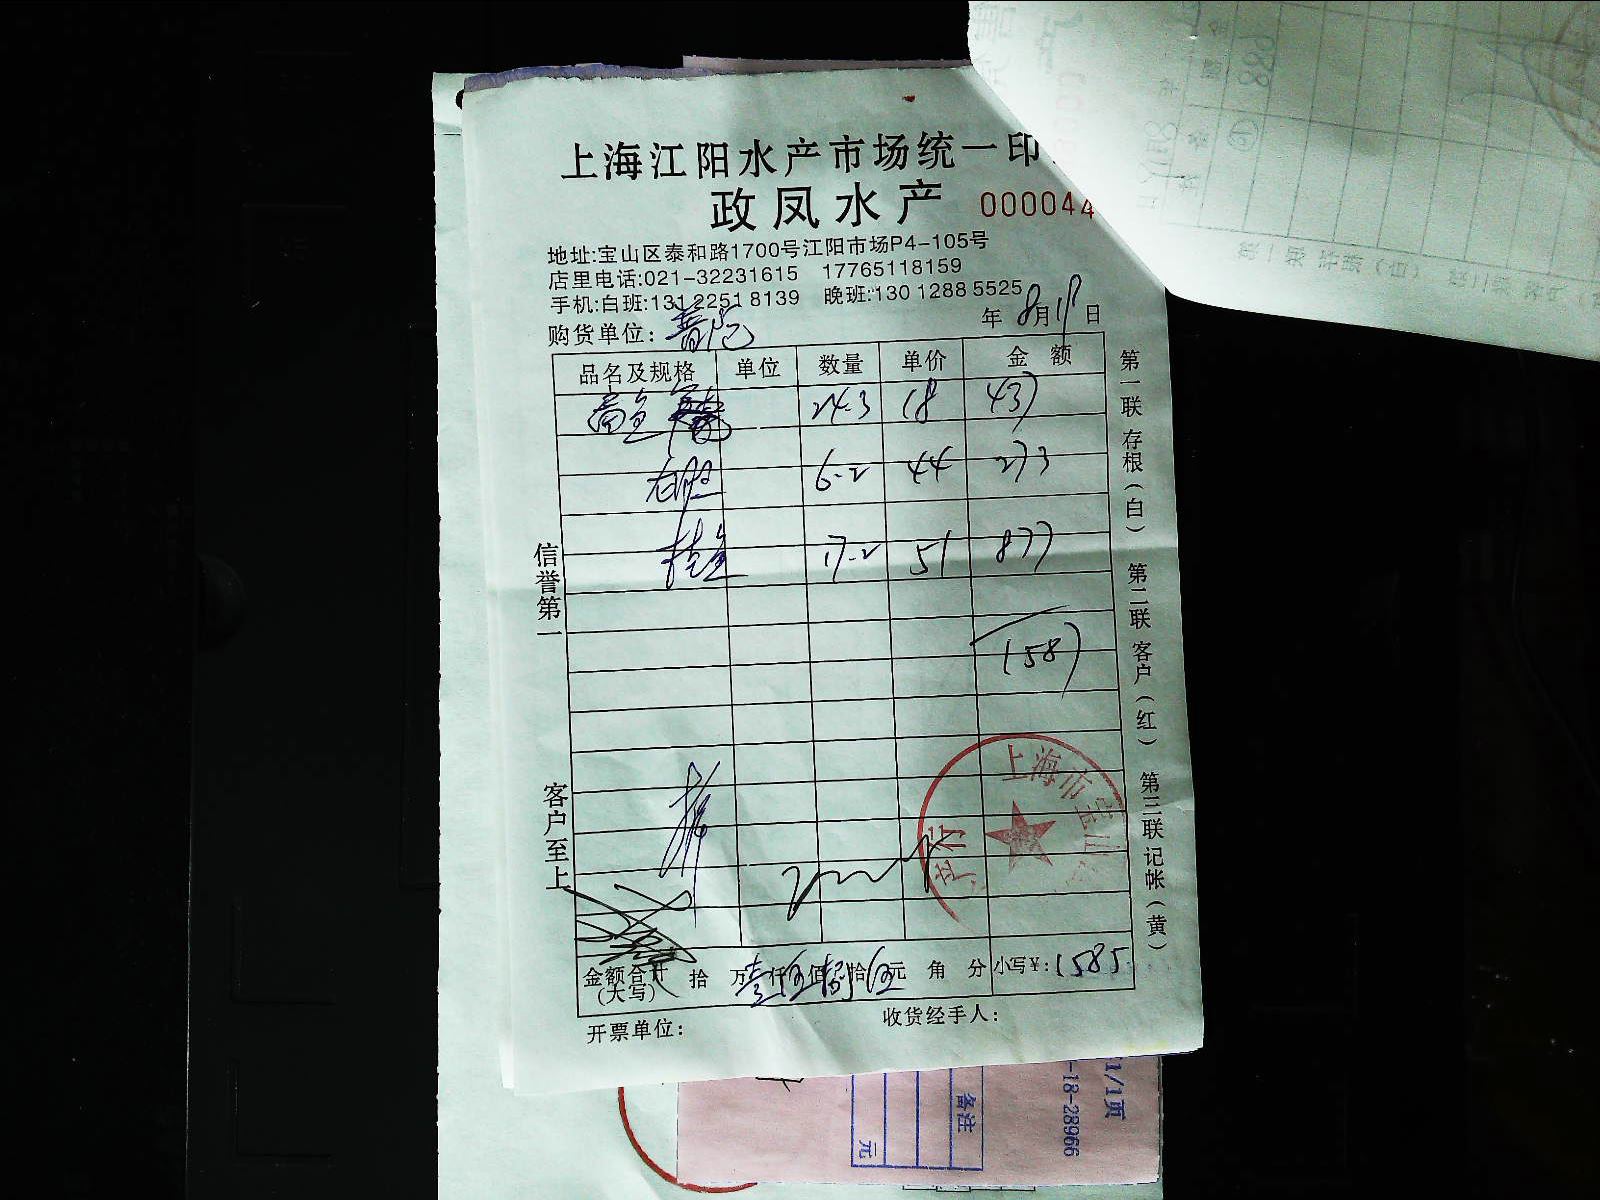 上海江阳水产市场统一印
政凤水产 000044
地址:宝山区泰和路1700号江阳市场P4-105号
店里电话:021-32231615 17765118159
手机:白班:131 2251 8139 晚班:130 1288 5525
购货单位: 年 8月18日
品名及规格 单位 数量 单价 金额
24.3 18 437
6.2 44 273
桂鱼 17.2 51 877
1587
金额合计(大写) 拾 万壹仟伍佰捌拾伍元 角 分 小写¥:1585
开票单位: 收货经手人:
信誉第一
客户至上
第一联 存根(白) 第二联 客户(红) 第三联 记帐(黄)
上海市宝山
产行
1/1页
-18-28966
备注
元